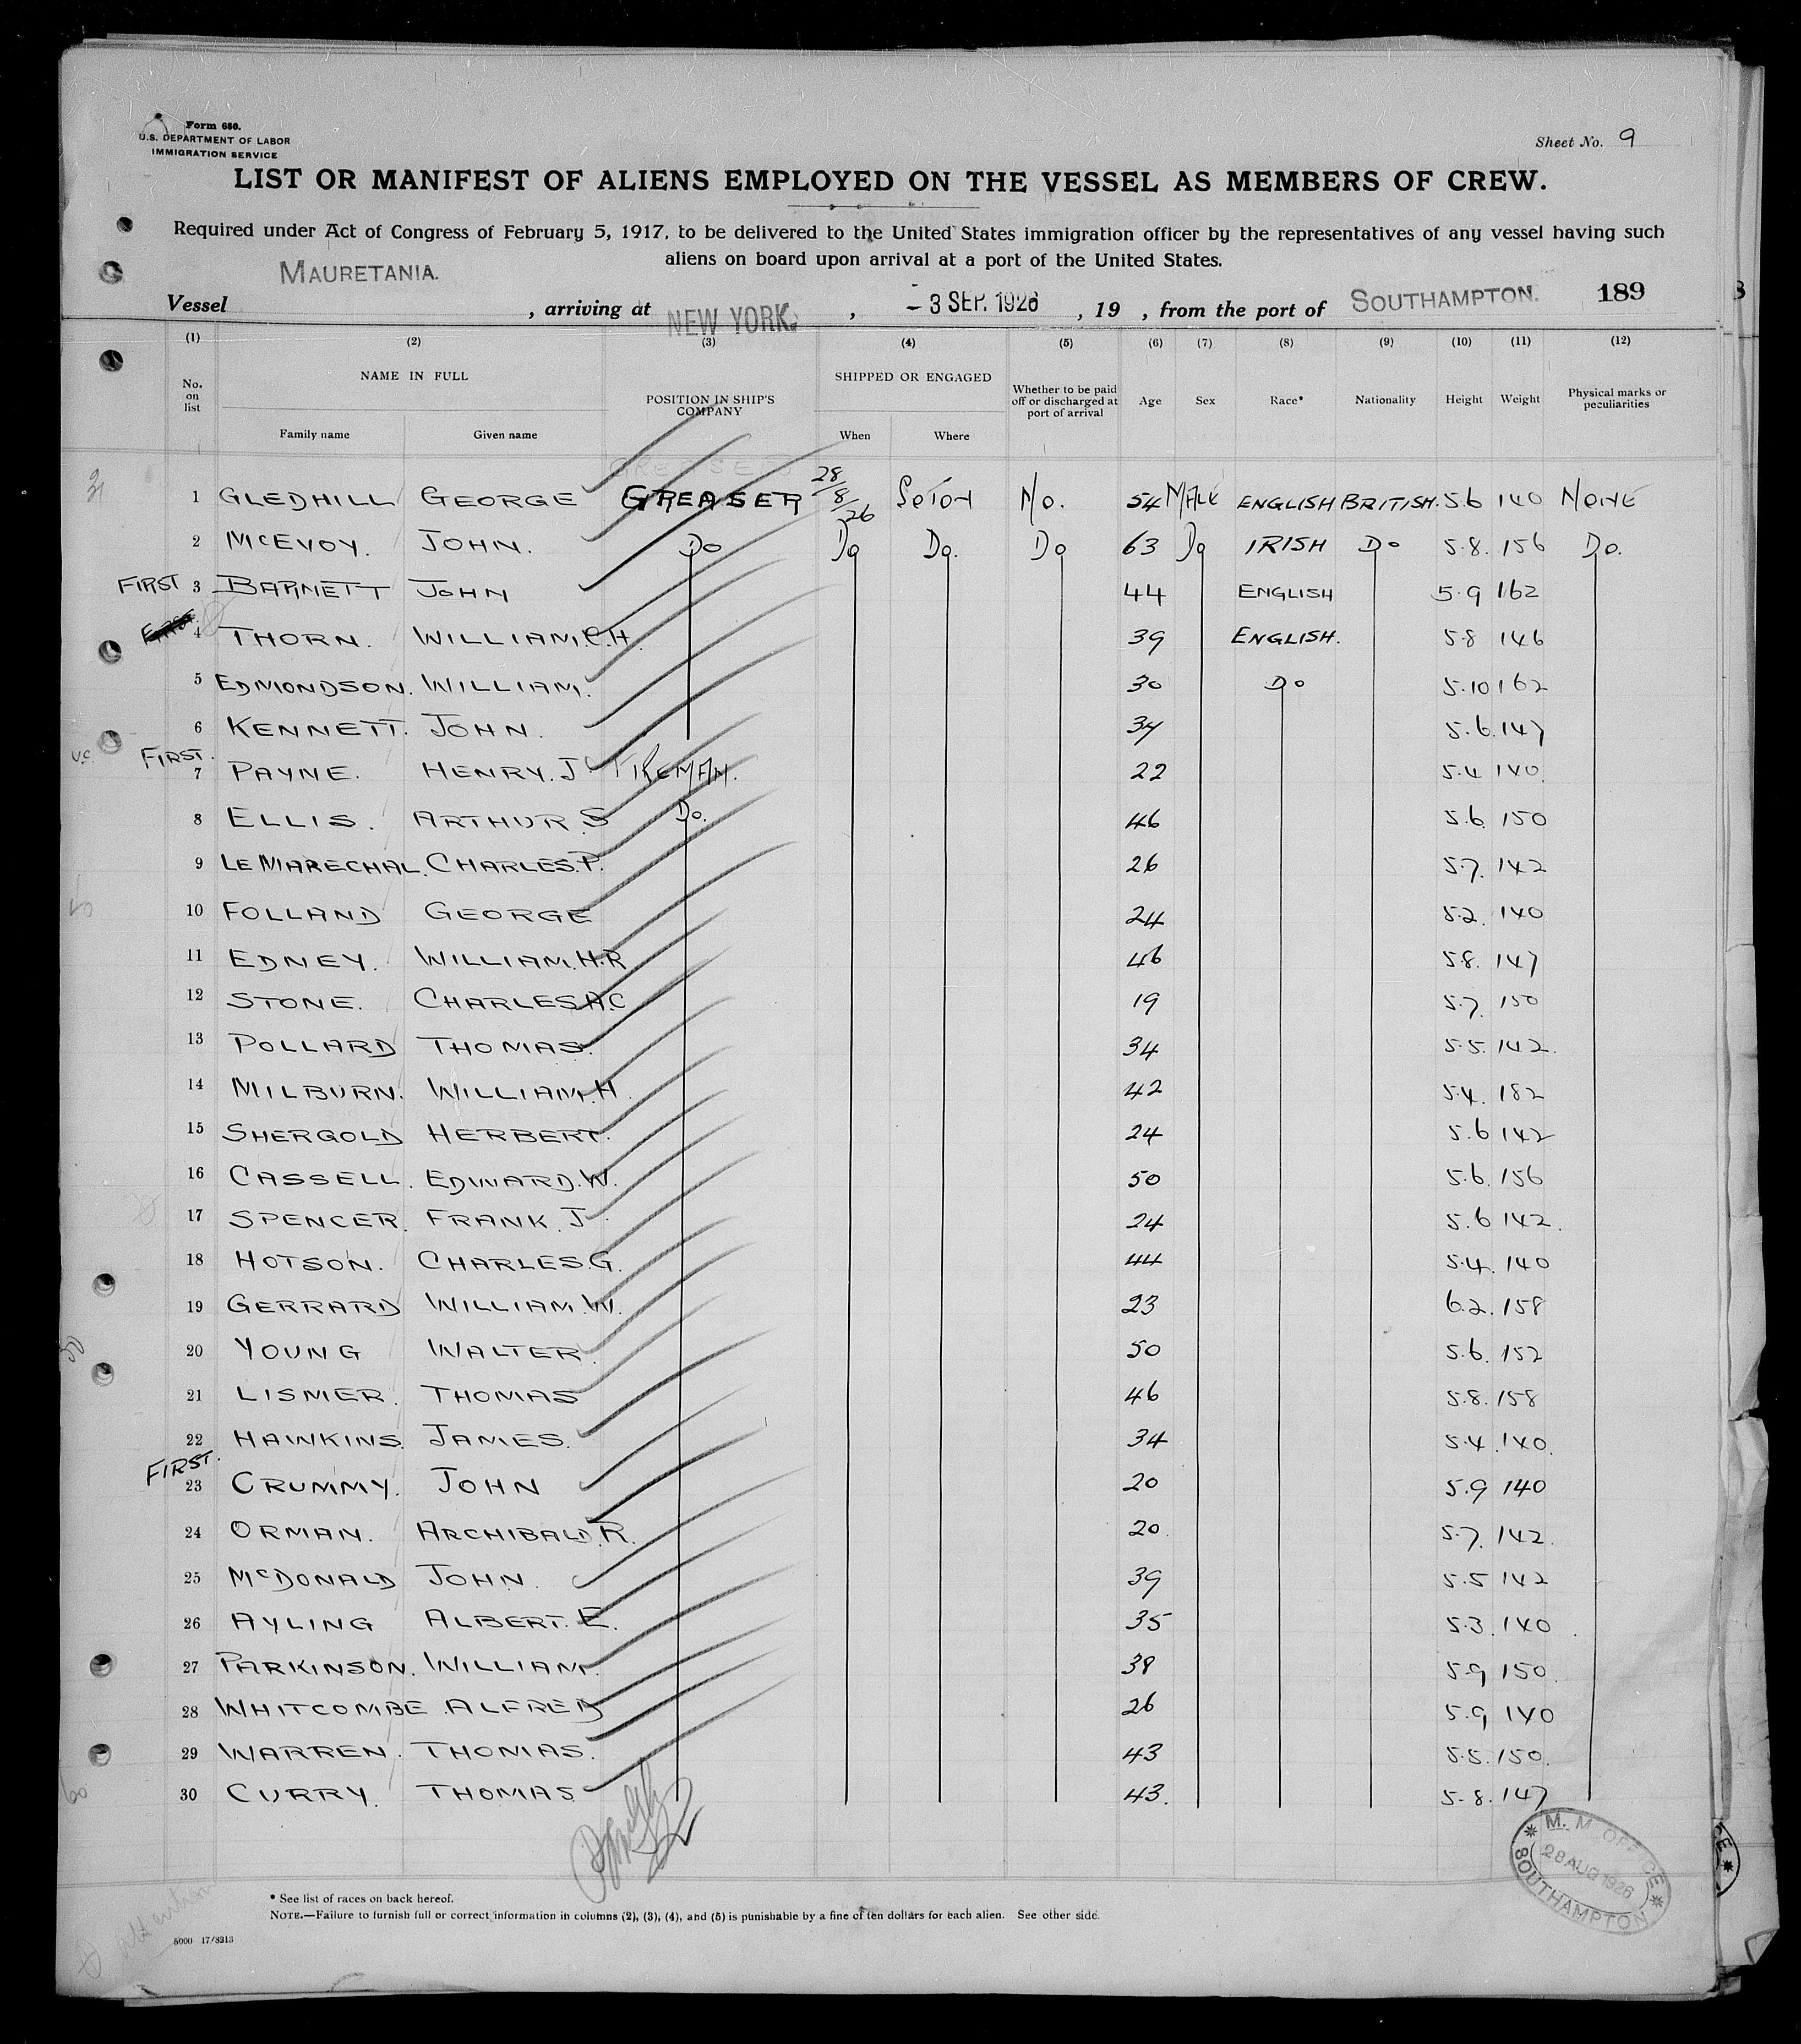 Form 680.
U.S. DEPARTMENT OF LABOR
IMMIGRATION SERVICE
Sheet No. 9
LIST OR MANIFEST OF ALIENS EMPLOYED ON THE VESSEL AS MEMBERS OF CREW.
Required under Act of Congress of February 5, 1917, to be delivered to the United States immigration officer by the representatives of any vessel having such
aliens on board upon arrival at a port of the United States.
Vessel MAURETANIA. , arriving at NEW YORK. , - 3 SEP. 1926 , 19 , from the port of SOUTHAMPTON. 189
(1) (2) (3) (4) (5) (6) (7) (8) (9) (10) (11) (12)
No. on list NAME IN FULL POSITION IN SHIP'S COMPANY SHIPPED OR ENGAGED Whether to be paid off or discharged at port of arrival Age Sex Race* Nationality Height Weight Physical marks or peculiarities
Family name Given name When Where
1 GLEDHILL GEORGE GREASER 28/8/26 SOTON NO. 54 MALE ENGLISH BRITISH. 5.6 140 NONE
2 McEVOY. JOHN. Do Do Do. Do 63 Do IRISH Do 5.8. 156 Do.
FIRST 3 BARNETT JOHN 44 ENGLISH 5.9 162
4 THORN. WILLIAM.C.H. 39 ENGLISH. 5.8 146
5 EDMONDSON. WILLIAM. 30 Do 5.10 162
6 KENNETT. JOHN. 34 5.6. 147
FIRST. 7 PAYNE. HENRY. J FIREMAN. 22 5.4 140.
8 ELLIS. ARTHUR. S Do. 46 5.6. 150
9 LE MARECHAL. CHARLES.P. 26 5.7. 142
10 FOLLAND GEORGE 24 5.2. 140
11 EDNEY. WILLIAM.H.R 46 5.8. 147
12 STONE. CHARLES.A.C 19 5.7. 150
13 POLLARD THOMAS. 34 5.5. 142.
14 MILBURN. WILLIAM.H. 42 5.4. 182
15 SHERGOLD HERBERT. 24 5.6 142
16 CASSELL. EDWARD.W. 50 5.6. 156
17 SPENCER. FRANK. J. 24 5.6 142.
18 HOTSON. CHARLES.G. 44 5.4. 140
19 GERRARD WILLIAM.W. 23 6.2. 158
20 YOUNG WALTER. 50 5.6. 152
21 LISMER. THOMAS 46 5.8. 158
22 HAWKINS. JAMES. 34 5.4. 140.
FIRST. 23 CRUMMY. JOHN 20 5.9 140
24 ORMAN. ARCHIBALD.R. 20. 5.7. 142.
25 McDONALD JOHN. 39 5.5 142
26 AYLING ALBERT. E. 35 5.3. 140.
27 PARKINSON. WILLIAM. 38 5.9 150.
28 WHITCOMBE ALFRED 26 5.9 140
29 WARREN. THOMAS. 43 5.5. 150.
30 CURRY. THOMAS 43. 5.8. 147
M. M. OFFICE
28 AUG 1926
SOUTHAMPTON
* See list of races on back hereof.
NOTE.—Failure to furnish full or correct information in columns (2), (3), (4), and (5) is punishable by a fine of ten dollars for each alien. See other side.
5000 17/8213